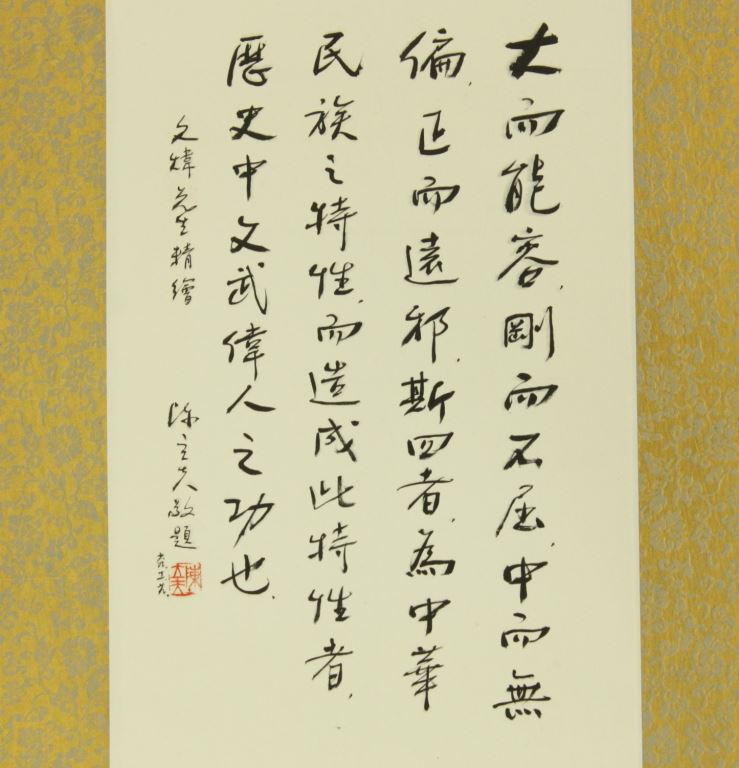 大而能容，剛而不屈，中而無
偏，正而遠邪，斯四者，為中華
民族之特性，而造成此特性者，
歷史中文武偉人之功也。
文煒先生精繪
陳立夫敬題
陳立夫